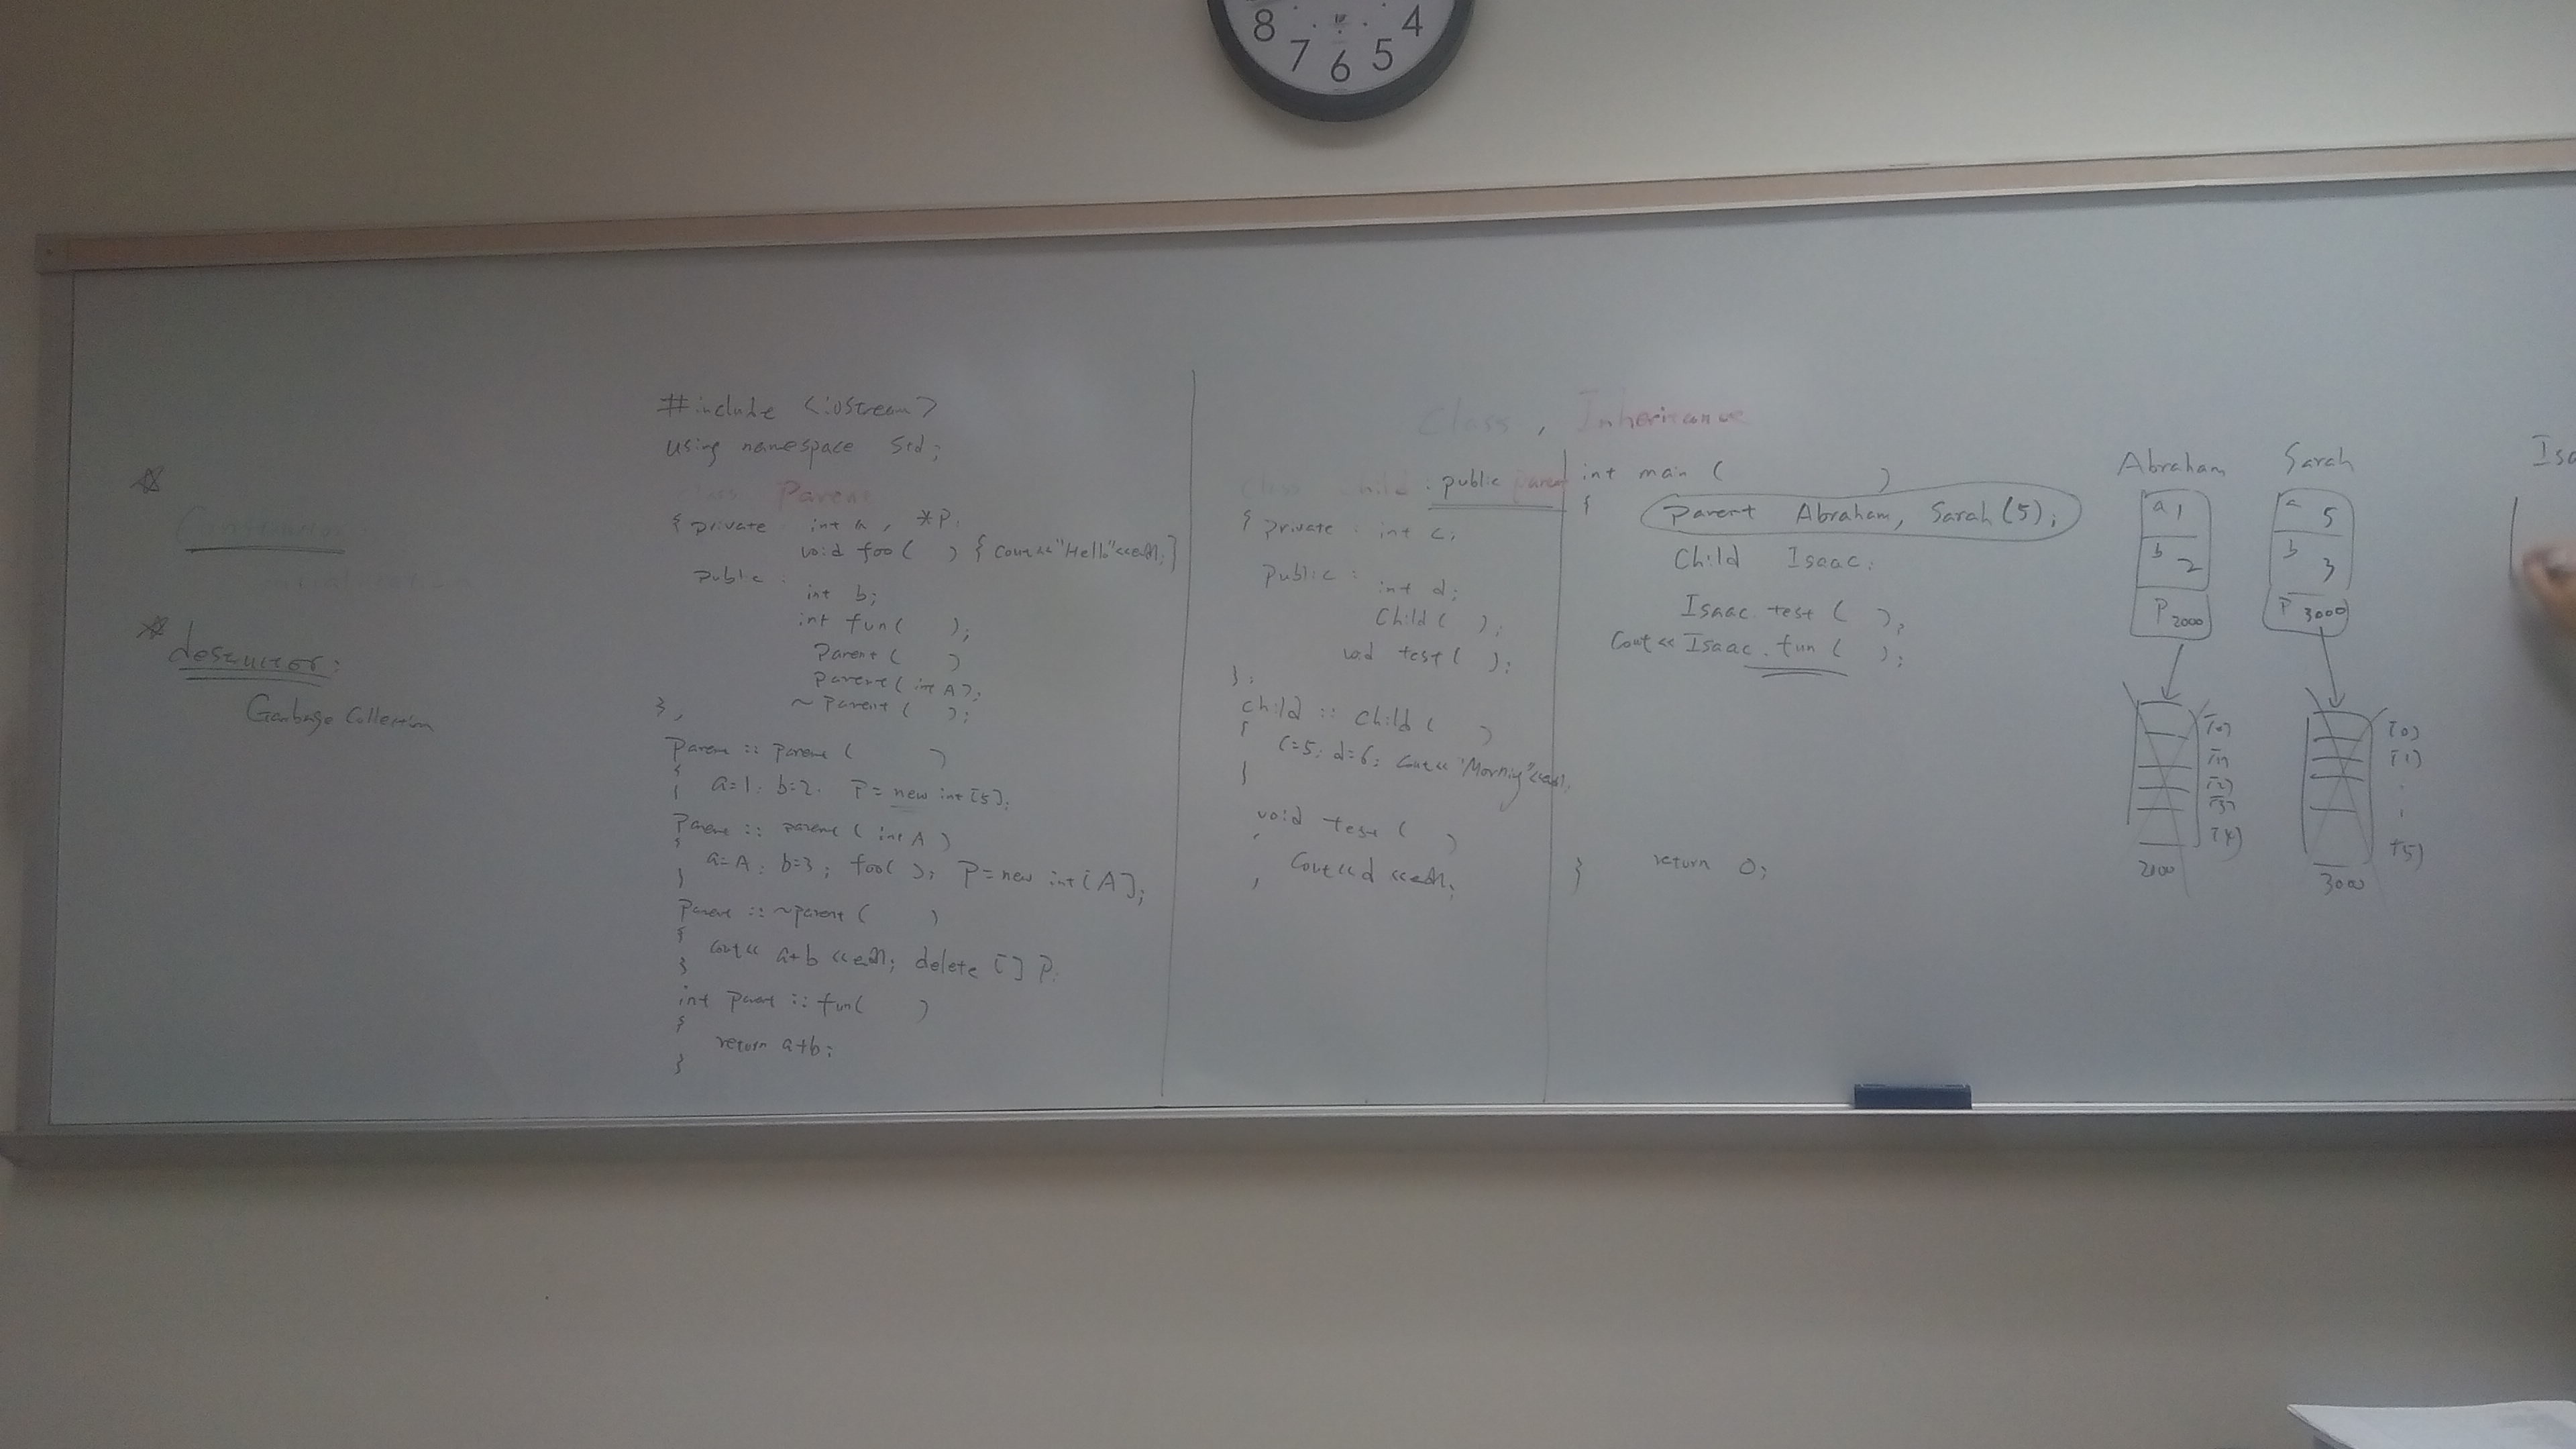 8 7 6 5 4
Constructor
*
destructor:
Garbage Collection
#include <iostream>
using namespace std;
class Parent
{ private int a, *P;
void foo( ) { cout<<"Hello"<<endl;}
public:
int b;
int fun( );
Parent( )
Parent(int A);
~Parent( );
};
Parent :: parent ( )
{
a=1; b=2; P = new int[5];
}
Parent :: parent ( int A )
{
a=A; b=3; foo( ); P=new int[A];
}
Parent :: ~parent ( )
{
cout<< a+b <<endl; delete [] P;
}
int parent :: fun( )
{
return a+b;
}
Class, Inheritance
class Child : public parent
{ private : int c;
public :
int d;
Child( );
void test( );
};
child :: child ( )
{
c=5; d=6; cout<< "Morning"<<endl;
}
void test ( )
cout<<d <<endl;
int main ( )
{
Parent Abraham, Sarah(5);
Child Isaac;
Isaac.test ( );
Cout<< Isaac.fun ( );
return 0;
}
Abraham
a 1
b 2
P 2000
[0]
[1]
[2]
[3]
[4]
2000
Sarah
a 5
b 3
P 3000
[0]
[1]
[5]
3000
Isa